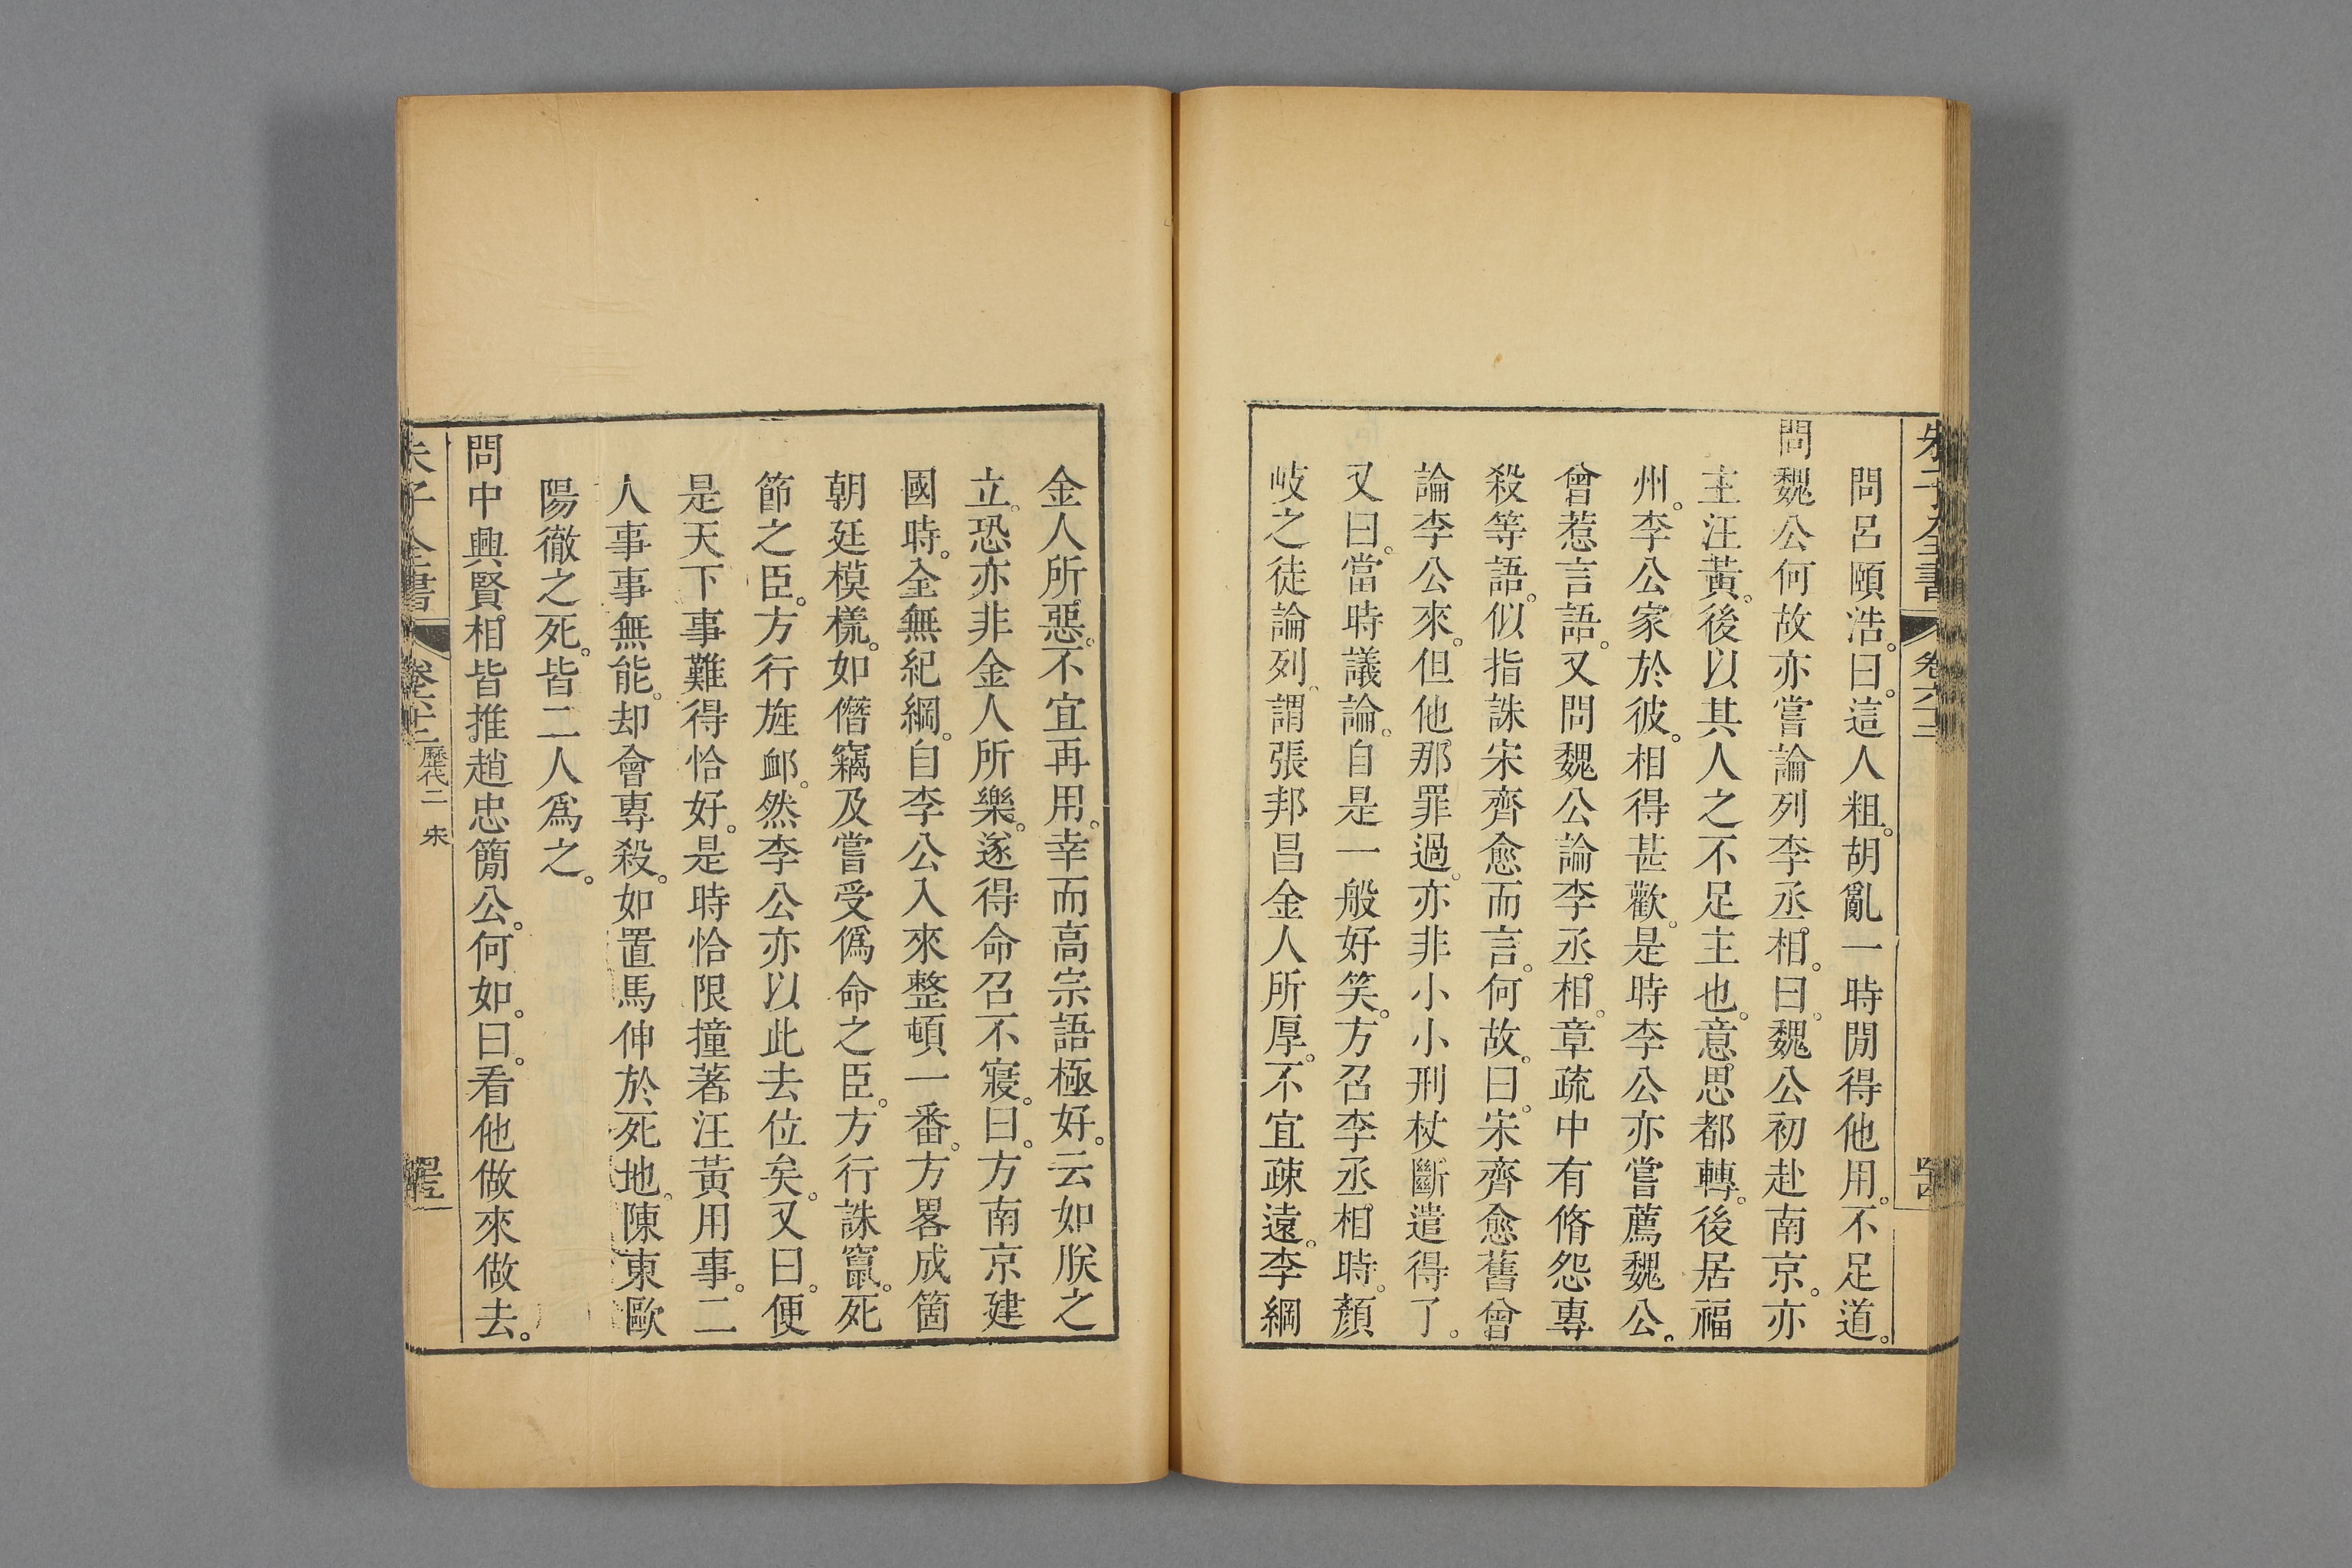 問呂頤浩。曰。這人粗。胡亂一時閒得他用。不足道。
問魏公何故亦嘗論列李丞相。曰。魏公初赴南京。亦
主汪黃。後以其人之不足主也。意思都轉。後居福
州。李公家於彼。相得甚歡。是時李公亦嘗薦魏公。
曾惹言語。又問魏公論李丞相。章疏中有脩怨專
殺等語。似指誅宋齊愈而言。何故。曰。宋齊愈舊曾
論李公來。但他那罪過。亦非小小刑杖斷遣得了。
又曰。當時議論。自是一般好笑。方召李丞相時。顏
岐之徒論列。謂張邦昌金人所厚。不宜疎遠。李綱
金人所惡。不宜再用。幸而高宗語極好。云如朕之
立。恐亦非金人所樂。遂得命召不寢。曰。方南京建
國時。全無紀綱。自李公入來整頓一番。方畧成箇
朝廷模樣。如僭竊及嘗受僞命之臣。方行誅竄。死
節之臣。方行旌卹。然李公亦以此去位矣。又曰。便
是天下事難得恰好。是時恰限撞著汪黃用事。二
人事事無能。却會專殺。如置馬伸於死地。陳東歐
陽徹之死。皆二人爲之。
問中興賢相皆推趙忠簡公。何如。曰。看他做來做去。
朱子全書
歷代二 宋